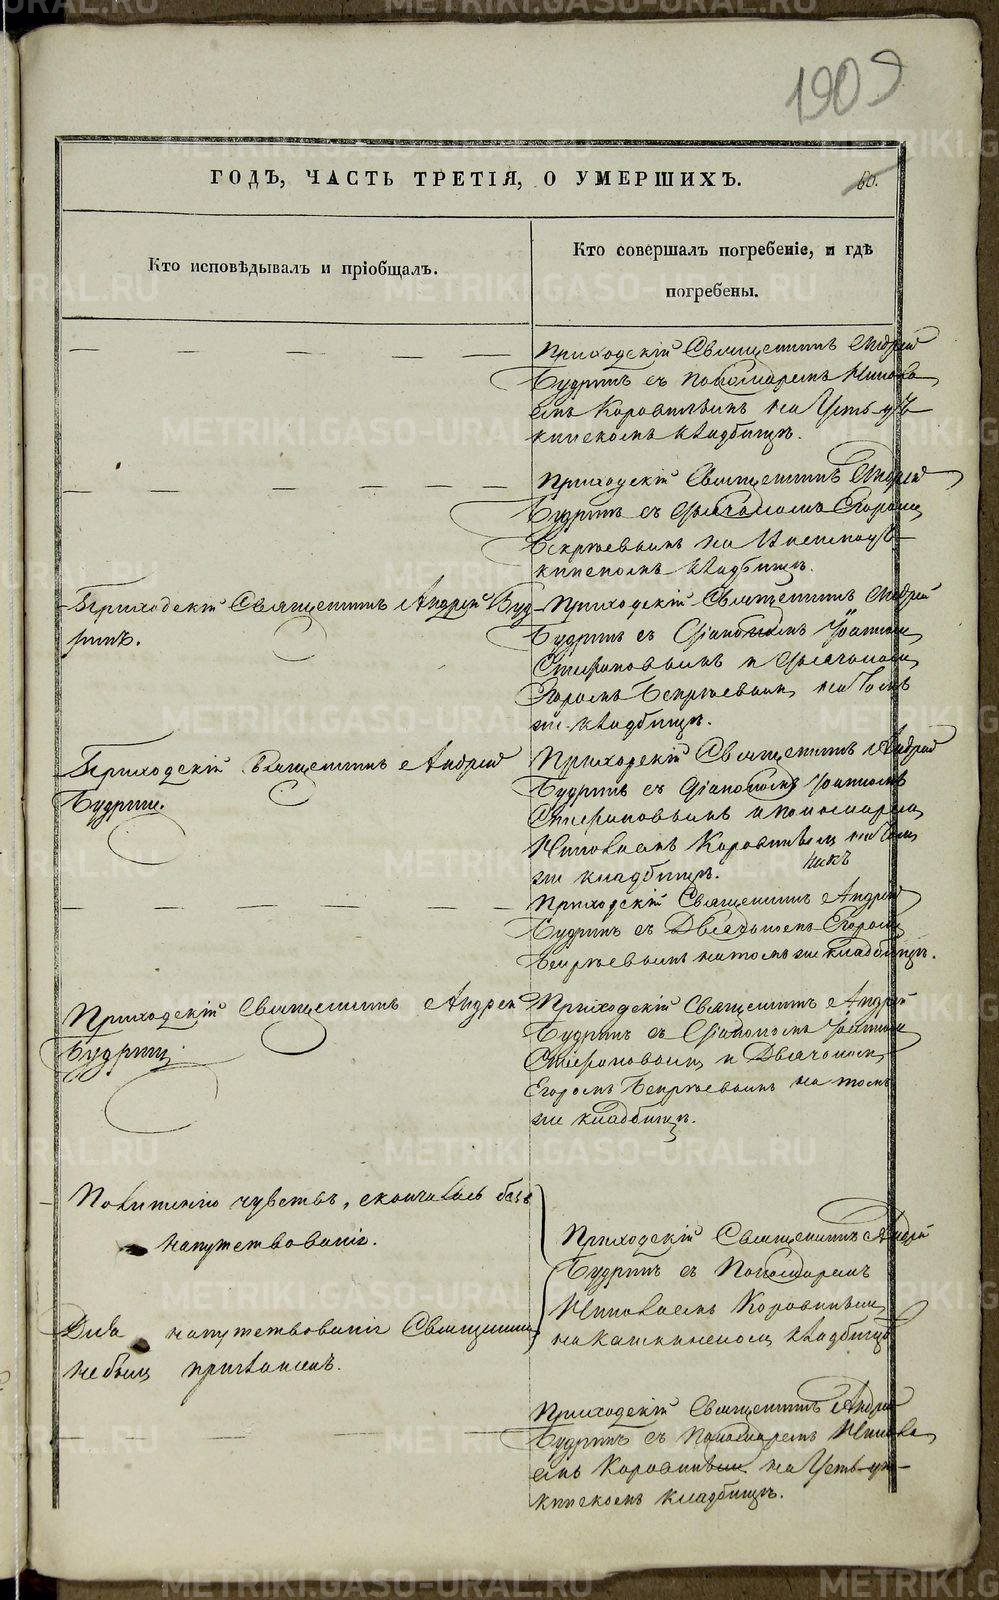 1909
ГОДЪ, ЧАСТЬ ТРЕТІЯ, О УМЕРШИХЪ.
60.
Кто исповѣдывалъ и пріобщалъ.
Кто совершалъ погребеніе, и гдѣ
погребены.
Приходскій Священникъ Андрей
Будринъ съ Пономаремъ Никола
емъ Коровинымъ на Усть-ут
кинскомъ кладбищѣ.
Приходскій Священникъ Андрей
Будринъ съ Дьячкомъ Егоромъ
на
кинскомъ кладбищѣ.
Приходскій Священникъ Андрей Буд-
ринъ.
Приходскій Священникъ Андрей
Будринъ съ Діакономъ Іоанномъ
Стефановымъ и Дьячкомъ
Егоромъ на томъ
же кладбищѣ.
Приходскій Священникъ Андрей
Будринъ.
Приходскій Священникъ Андрей
Будринъ съ Діакономъ Іоанномъ
Стефановымъ и пономаремъ
Николаемъ Коровинымъ на томъ
же кладбищѣ.
Приходскій Священникъ Андрей
Будринъ съ Дьячкомъ Егоромъ
на томъ же кладбищѣ.
Приходскій Священникъ Андрей
Будринъ.
Приходскій Священникъ Андрей
Будринъ съ Діакономъ Іоанномъ
Стефановымъ и Дьячкомъ
Егоромъ на томъ
же кладбищѣ.
По лишенію чувствъ, скончалась безъ
напутствованія.
Для напутствованія Священникъ
не былъ приглашенъ.
Приходскій Священникъ Андрей
Будринъ съ Пономаремъ
Николаемъ Коровинымъ
на кладбищѣ
Приходскій Священникъ Андрей
Будринъ съ Пономаремъ Никола
емъ Коровинымъ на Усть-ут-
кинскомъ кладбищѣ.
METRIKI.GASO-URAL.RU